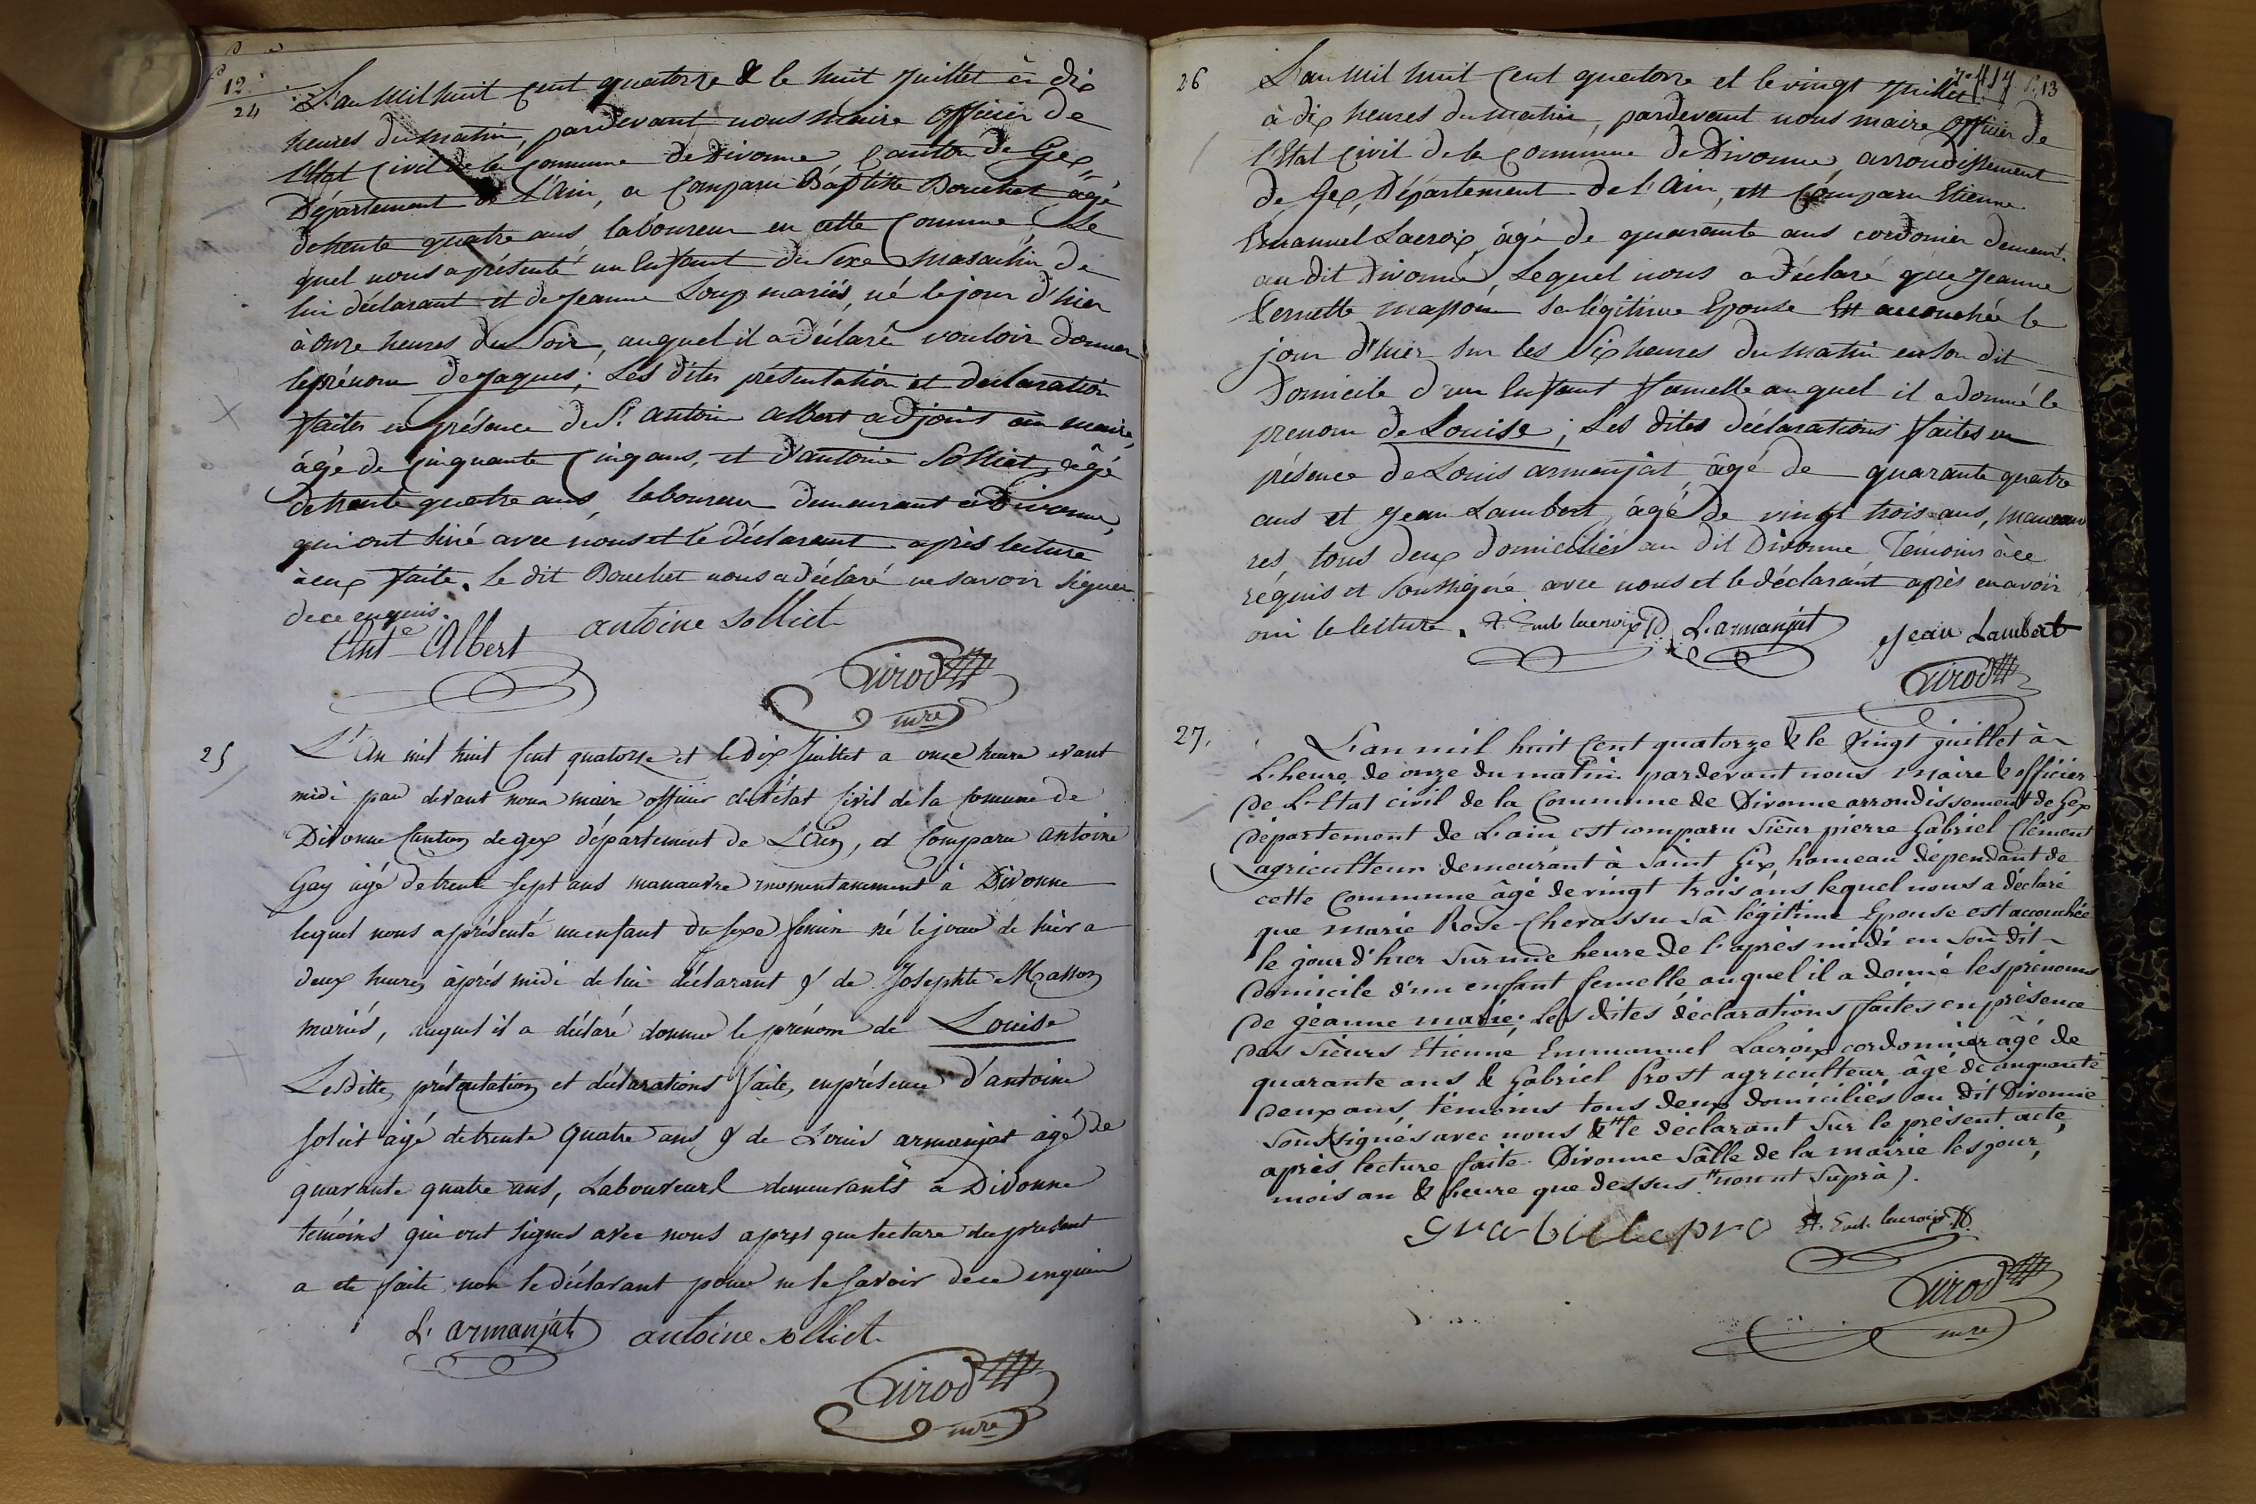 12.
24
L'an mil huit cent quatorze & le huit Juillet à dix
heures du matin, pardevant nous maire officier de
l'Etat Civil de la Commune de Divonne, Canton de Gex,
Département de l'Ain, a Comparu Baptiste Bouchet âgé
de trente quatre ans laboureur en cette Commune Le
quel nous a présenté un Enfant du Sexe Masculin de
lui déclarant et de Jeanne Loup mariés, né le jour d'hier
à onze heures du Soir, auquel il a déclaré vouloir donner
le prénom de Jaques; Les dites présentation et declaration
faites en présence de Sr. antoine albert adjoint au maire,
âgé de Cinquante Cinq ans, et d'antoine Solliet, âgé
de trente quatre ans, laboureur demeurant à Divonne,
qui ont siné avec nous et le déclarant après lecture
à eux faite. le dit Bouchet nous a déclaré ne savoir signer
de ce enquis.
Ante Albert antoine solliet
Girod
mre
25
L'An mil huit Cent quatorze et le dix Juillet a onze heure avant
midi par devant nous maire officier de l'état Civil de la Comune de
Divonne Canton de gex département de L'Ain, et Comparu antoine
Gay âgé de trente sept ans manœuvre momentanément à Divonne
lequel nous a présenté un enfant du sexe féminin né le jour de hièr a
deux heures àprés midi de lui déclarant & de Josephte Masson
mariés, auquel il a déclaré donner le prénom de Louise
Lesditte, présentation et déclarations faite, en présence d'antoine
soliet âgé de trente Quatre ans & de Louis armanjat agé de
quarante quatre ans, Laboureurs demeurants à Divonne
temoins qui ont signés avec nous apres que lecture du présent
a ete faite non le déclarant pour ne le savoir de ce enquis
L. armanjat antoine solliet
Girod
mre
7e 13
26
L'an Mil huit Cent quatorze et le vingt Juillet
à dix heures du matin, pardevant nous maire officier de
l'Etat Civil de la Commune de Divonne, arrondissement
de Gex, Département de l'Ain, est Comparu Etienne
Emanuel Lacroix, âgé de quarante ans cordonier demeurt.
au dit Divonne, Lequel nous a déclaré que Jeanne
Pernette Masson sa légitime Epouse Est accouchée le
jour d'hier sur les Six heures du matin en son dit
Domicile d'un Enfant femelle auquel il a donné le
prenom de Louise; Les dites déclarations faites en
présence de Louis armanjat, âgé de quarante quatre
ans et Jean Lambert, âgé de vingt trois ans, manœuv
res tous deux domiciliés au dit Divonne Témoins à ce
réquis et Soussigné avec nous et le déclarant après en avoir
oui la lecture. E. Eml lacroix L. armanjat Jean Lambert
Girod
27.
L'an mil huit Cent quatorze & le vingt juillet à
L'heure de onze du matin. pardevant nous maire & officier
de L'Etat civil de la Commune de Divonne arrondissement de Gex
département de L'ain, est comparu Sieur pierre Gabriel Clément
agriculteur demeurant à Saint Gix, hameau dépendant de
cette Commune âgé de vingt trois ans lequel nous a déclaré
que Marie Rose Chevassu sâ légitime Epouse est accouchée
le jour d'hier Sur une heure de l'après midi en son dit
domicile d'un enfant femelle auquel il a donné les prénoms
de geanne marie; Les dites déclarations faites en présence
des Sieurs Etienne Emmanuel Lacroix cordonnier âgé de
quarante ans & Gabriel Prost agriculteur âgé de cinquante
deux ans, témoins tous deux domiciliés au dit Divonne
Soussignés avec nous & #le déclarant sur le présent acte,
après lecture faite. Divonne Sâlle de la mairie les jour,
mois an & heure que dessus. #non ut suprà).
gvabielepro E. Eml. lacroix
Girod
mre